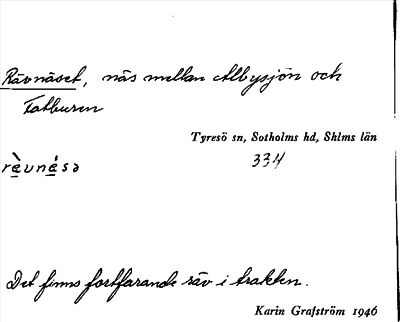 Rävnäset, näs mellan Albysjön och
Fatburen
Tyresö sn, Sotholms hd, Shlms län
334
rὲvnέsə
Det finns fortfarande räv i trakten.
Karin Grafström 1946